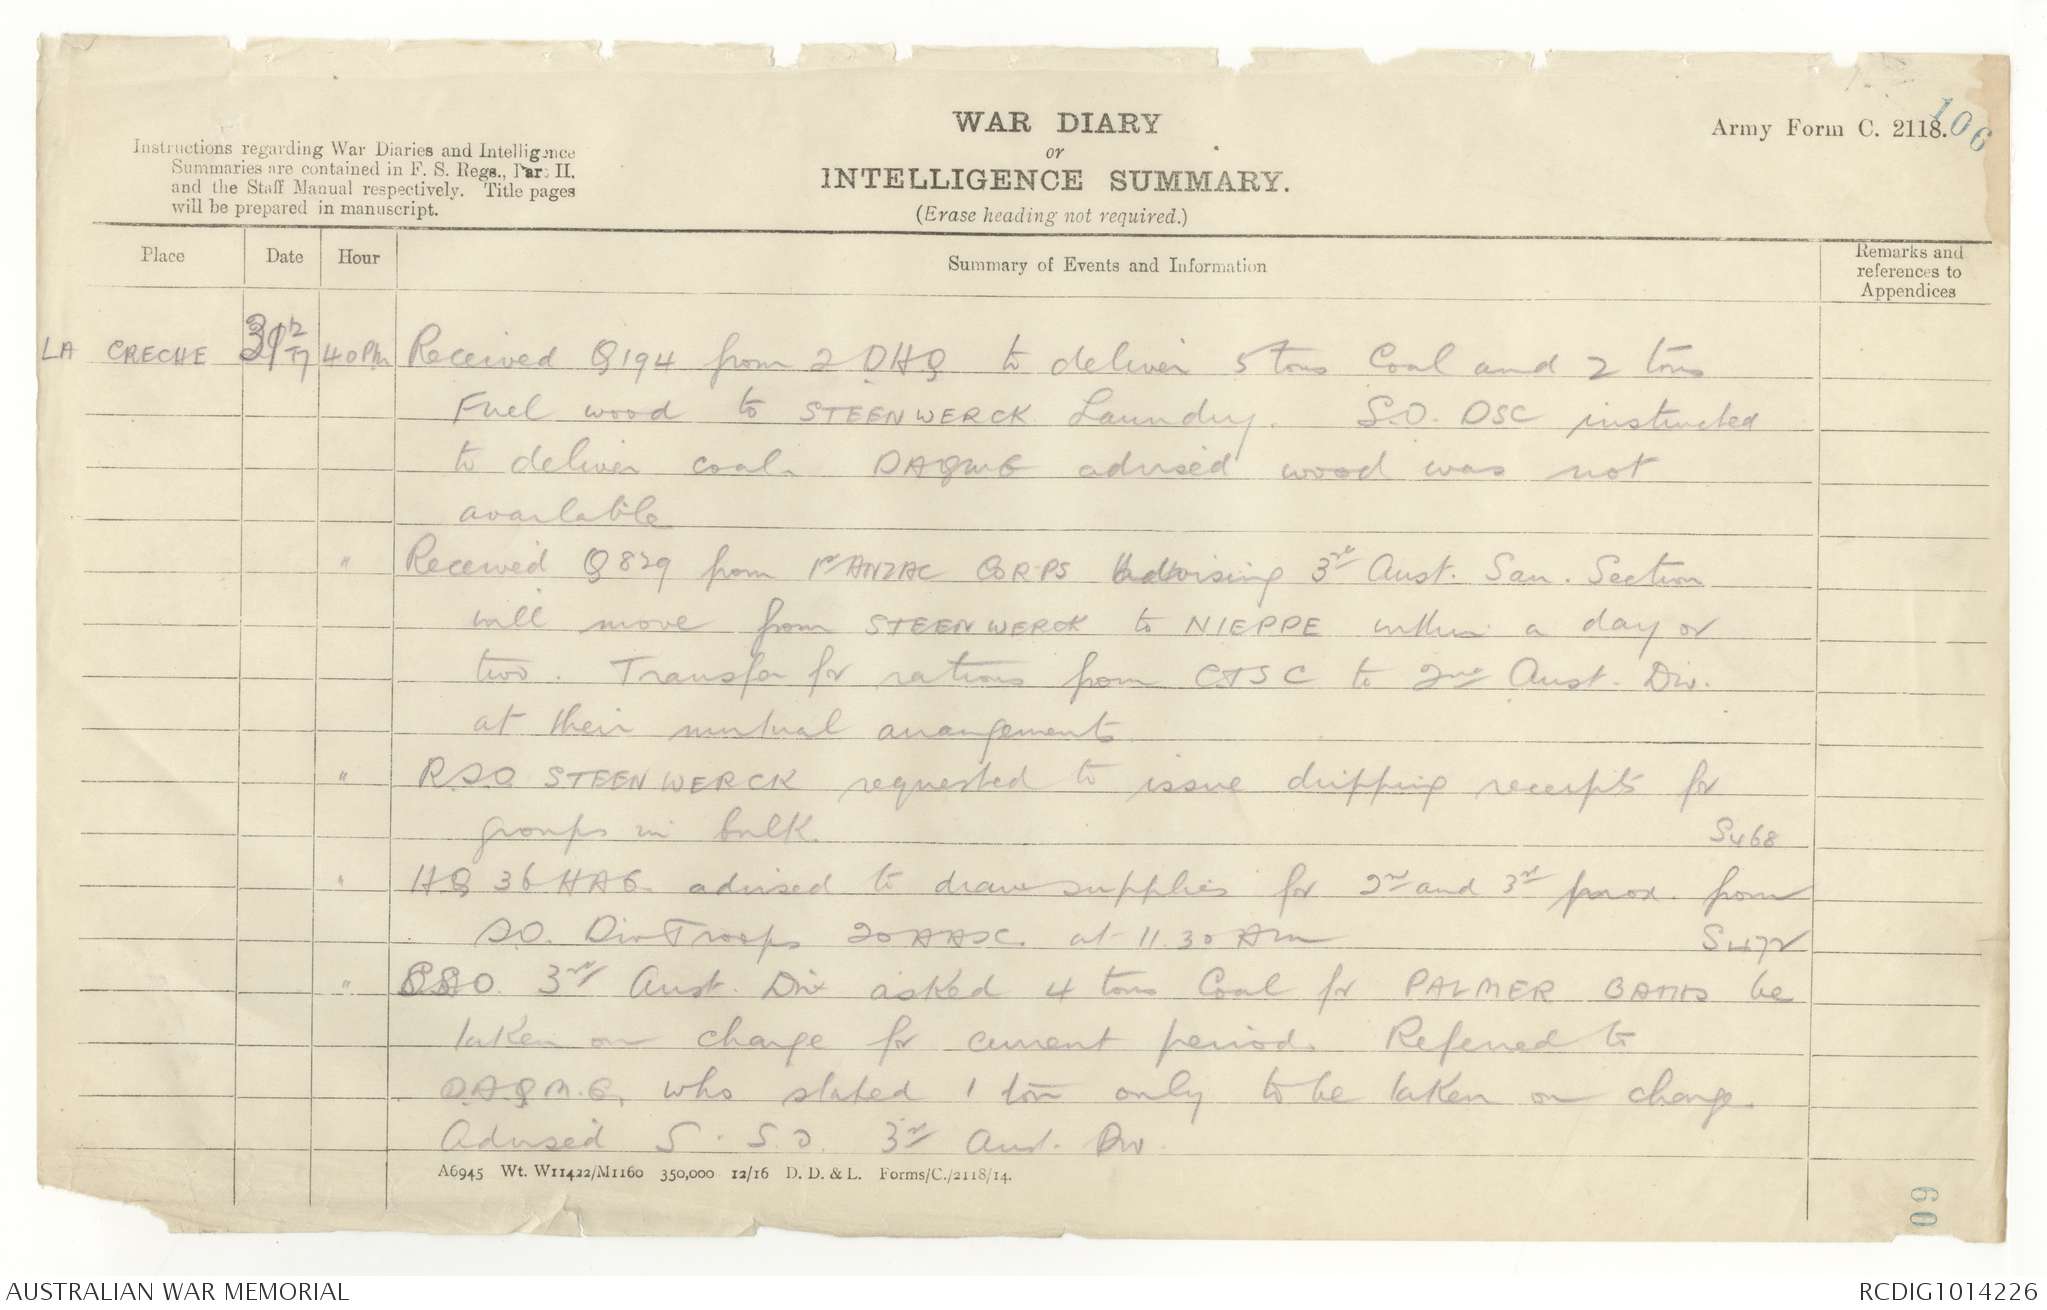 106
WAR DIARY
or
INTELLIGENCE SUMMARY.
(Erase heading not required.)
Army Form C. 2118.
Instructions regarding War Diaries and Intelligence
Summaries are contained in F. S. Regs., Part II.
and the Staff Manual respectively. Title pages
will be prepared in manuscript.
Place
Date
Hour
Summary of Events and Information
Remarks and
references to
Appendices
LA CRECHE 31 12/17 Received Q194 from 2 DHQ to deliver 5 tons Coal and 2 tons
Fuel wood to STEENWERCK Laundry. S.O. DSC instructed
to deliver coal. DAQMG advised wood was not
available
" Received Q829 from 1st ANZAC CORPS advising 3rd Aust. San. Section
will move from STEENWERCK to NIEPPE within a day or
two. Transfer for rations from CTSC to 2nd Aust. Div.
at their mutual arangements
" R.S.O STEENWERCK requested to issue dripping receipts for
groups in bulk. S468
" HQ 36 HAG advised to draw supplies for 2nd and 3rd prox. from
SO. Div Troops 20 AASC. at 11.30 Am S472
" 3rd Aust. Div asked 4 tons Coal for PALMER BATHS be
taken on charge for current period. Referred to
D.A.Q.M.G. who stated 1 ton only to be taken on charge.
Advised S.S.O. 3rd Aust. Div.
A6945 Wt. W11422/M1160 350,000 12/16 D. D. & L. Forms/C./2118/14.
60
AUSTRALIAN WAR MEMORIAL
RCDIG1014226